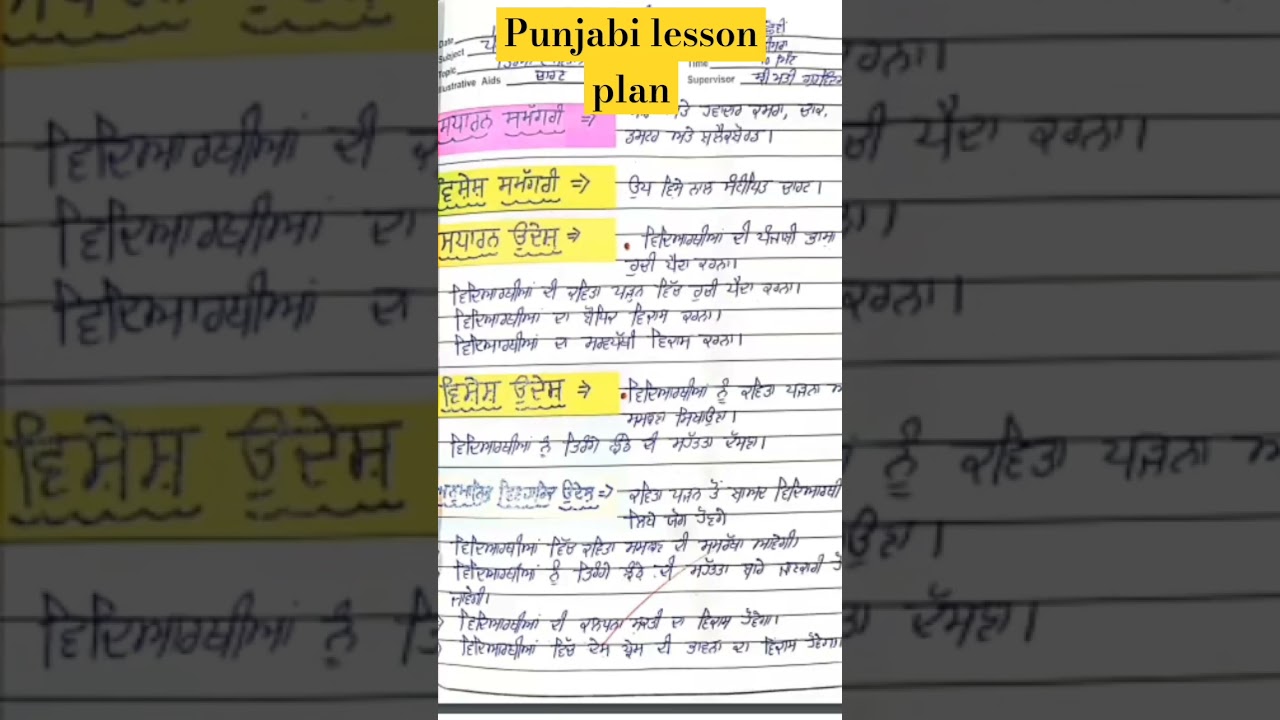 Punjabi lesson
plan
Date
Subject
Topic
Illustrative Aids ਚਾਰਟ
Time
Supervisor ਸ਼੍ਰੀਮਤੀ
ਸਧਾਰਨ ਸਮੱਗਰੀ => ਅਤੇ ਹਵਾਦਾਰ ਕਮਰਾ, ਚਾਕ,
ਡਸਟਰ ਅਤੇ ਬਲੈਕਬੋਰਡ।
ਵਿਸ਼ੇਸ਼ ਸਮੱਗਰੀ => ਉਪ ਵਿਸ਼ੇ ਨਾਲ ਸੰਬੰਧਿਤ ਚਾਰਟ।
ਸਧਾਰਨ ਉਦੇਸ਼ => • ਵਿਦਿਆਰਥੀਆਂ ਦੀ ਪੰਜਾਬੀ ਭਾਸ਼ਾ
ਰੁਚੀ ਪੈਦਾ ਕਰਨਾ।
ਵਿਦਿਆਰਥੀਆਂ ਦੀ ਕਵਿਤਾ ਪੜ੍ਹਨ ਵਿੱਚ ਰੁਚੀ ਪੈਦਾ ਕਰਨਾ।
ਵਿਦਿਆਰਥੀਆਂ ਦਾ ਬੌਧਿਕ ਵਿਕਾਸ ਕਰਨਾ।
ਵਿਦਿਆਰਥੀਆਂ ਦਾ ਸਰਵਪੱਖੀ ਵਿਕਾਸ ਕਰਨਾ।
ਵਿਸ਼ੇਸ਼ ਉਦੇਸ਼ => • ਵਿਦਿਆਰਥੀਆਂ ਨੂੰ ਕਵਿਤਾ ਪੜਨਾ
ਸਮਝਣਾ ਸਿਖਾਉਣਾ।
ਵਿਦਿਆਰਥੀਆਂ ਨੂੰ ਤਿਰੰਗੇ ਝੰਡੇ ਦੀ ਮਹੱਤਤਾ ਦੱਸਣਾ।
ਅਨੁਮਾਨਿਤ ਵਿਵਹਾਰਿਕ ਉਦੇਸ਼ => ਕਵਿਤਾ ਪੜਨ ਤੋਂ ਬਾਅਦ ਵਿਦਿਆਰਥੀ
ਯੋਗ ਹੋਣਗੇ
ਵਿਦਿਆਰਥੀਆਂ ਵਿੱਚ ਕਵਿਤਾ ਸਮਝਣ ਦੀ ਸਮਰੱਥਾ ਆਵੇਗੀ।
ਵਿਦਿਆਰਥੀਆਂ ਨੂੰ ਤਿਰੰਗੇ ਝੰਡੇ ਦੀ ਮਹੱਤਤਾ ਬਾਰੇ ਜਾਣਕਾਰੀ ਹੋ
ਜਾਵੇਗੀ।
ਵਿਦਿਆਰਥੀਆਂ ਦੀ ਕਲਪਨਾ ਸ਼ਕਤੀ ਦਾ ਵਿਕਾਸ ਹੋਵੇਗਾ।
ਵਿਦਿਆਰਥੀਆਂ ਵਿੱਚ ਦੇਸ਼ ਪ੍ਰੇਮ ਦੀ ਭਾਵਨਾ ਦਾ ਵਿਕਾਸ ਹੋਵੇਗਾ।